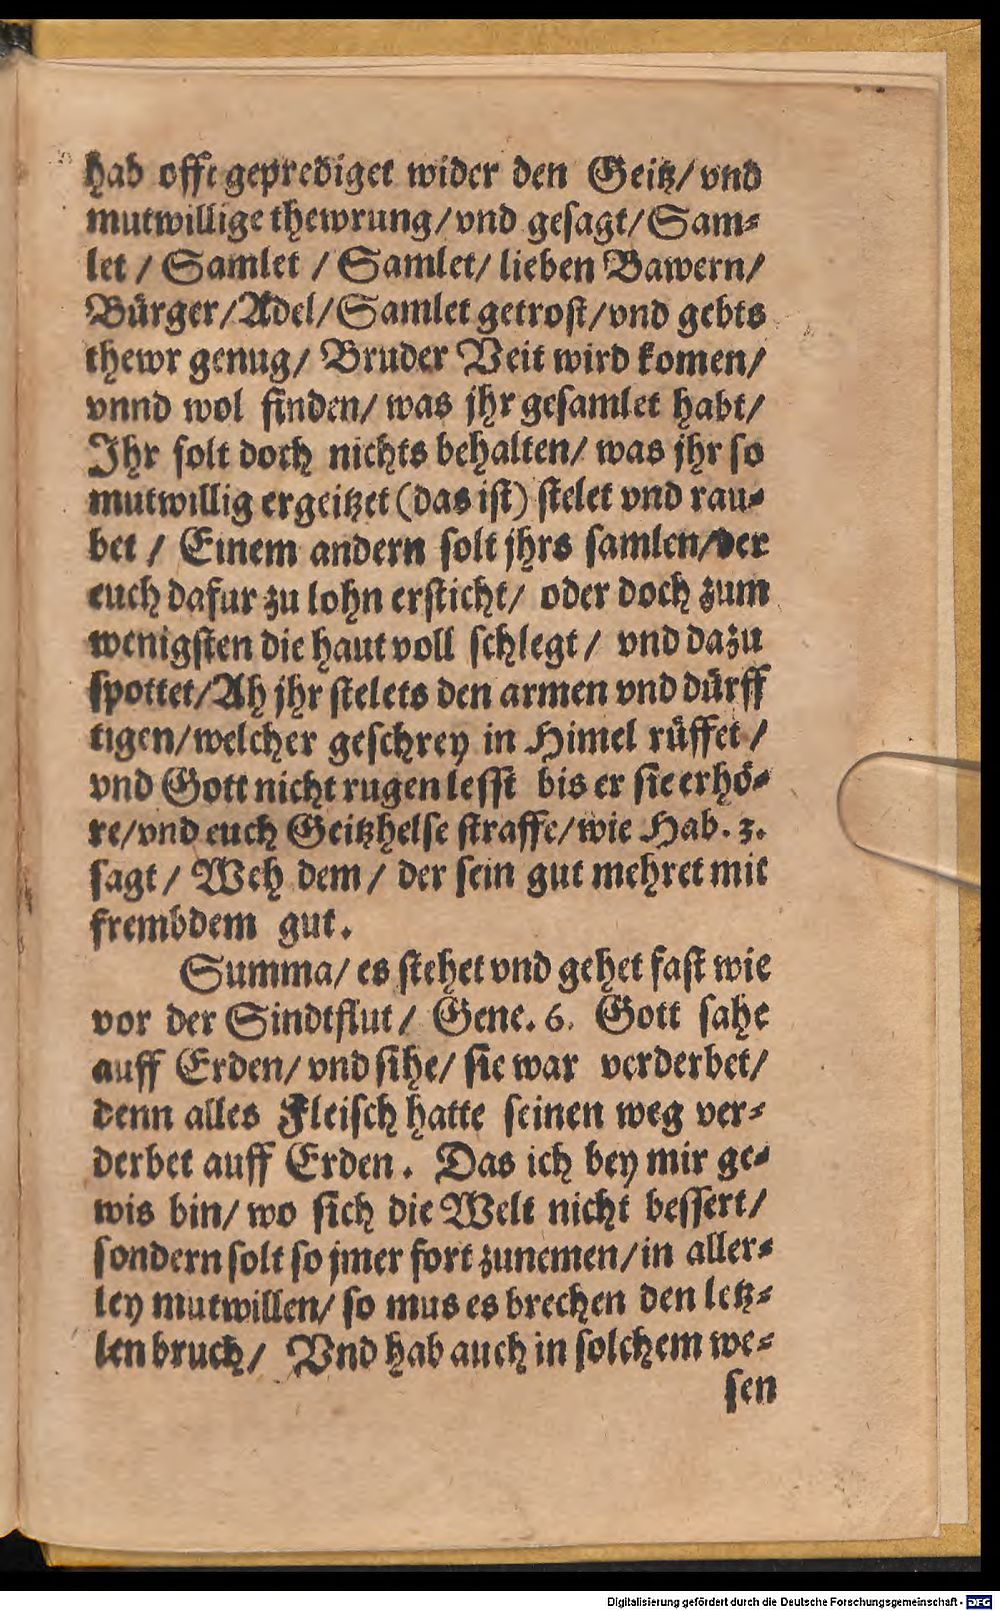 hab offt geprediget wider den Geitz/ vnd
mutwillige thewrung/ vnd gesagt/ Sam⸗
let / Samlet / Samlet/ lieben Bawern/
Bürger/ Adel/ Samlet getrost/ vnd gebts
thewr genug/ Bruder Veit wird komen/
vnnd wol finden/ was jhr gesamlet habt/
Jhr solt doch nichts behalten/ was jhr so
mutwillig ergeitzet (das ist) stelet vnd rau⸗
bet / Einem andern solt jhrs samlen/ der
euch dafur zu lohn ersticht/ oder doch zum
wenigsten die haut voll schlegt / vnd dazu
spottet/ Ah jhr stelets den armen vnd dürff
tigen/ welcher geschrey in Himel rüffet /
vnd Gott nicht rugen lesst bis er sie erhö⸗
re/ vnd euch Geitzhelse straffe/ wie Hab. 3.
sagt / Weh dem / der sein gut mehret mit
frembdem gut.
Summa/ es stehet vnd gehet fast wie
vor der Sindtflut / Gene. 6. Gott sahe
auff Erden/ vnd sihe/ sie war verderbet/
denn alles Fleisch hatte seinen weg ver⸗
derbet auff Erden. Das ich bey mir ge⸗
wis bin/ wo sich die Welt nicht bessert/
sondern solt so jmer fort zunemen/ in aller⸗
ley mutwillen/ so mus es brechen den letz⸗
len bruch/ Vnd hab auch in solchem we⸗
sen
Digitalisierung gefördert durch die Deutsche Forschungsgemeinschaft - DFG